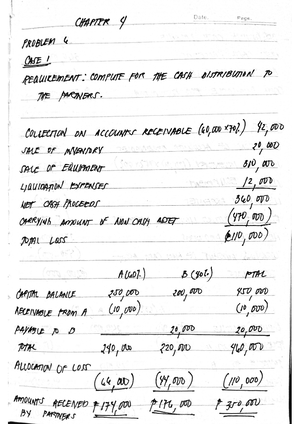 Date. Page.
CHAPTER 4
PROBLEM 6
CASE 1
REQUIREMENT: COMPUTE FOR THE CASH DISTRIBUTION TO
THE PARTNERS.
COLLECTION ON ACCOUNTS RECEIVABLE (60,000 x 70%) 42,000
SALE OF INVENTORY 20,000
SALE OF EQUIPMENT 310,000
LIQUIDATION EXPENSES 12,000
NET CASH PROCEEDS 360,000
CARRYING AMOUNT OF NON CASH ASSET (470,000)
TOTAL LOSS (110,000)
A (60%) B (40%) TOTAL
CAPITAL BALANCE 250,000 200,000 450,000
RECEIVABLE FROM A (10,000) (10,000)
PAYABLE TO B 20,000 20,000
TOTAL 240,000 220,000 460,000
ALLOCATION OF LOSS
(66,000) (44,000) (110,000)
AMOUNTS RECEIVED ₱174,000 ₱176,000 ₱350,000
BY PARTNERS